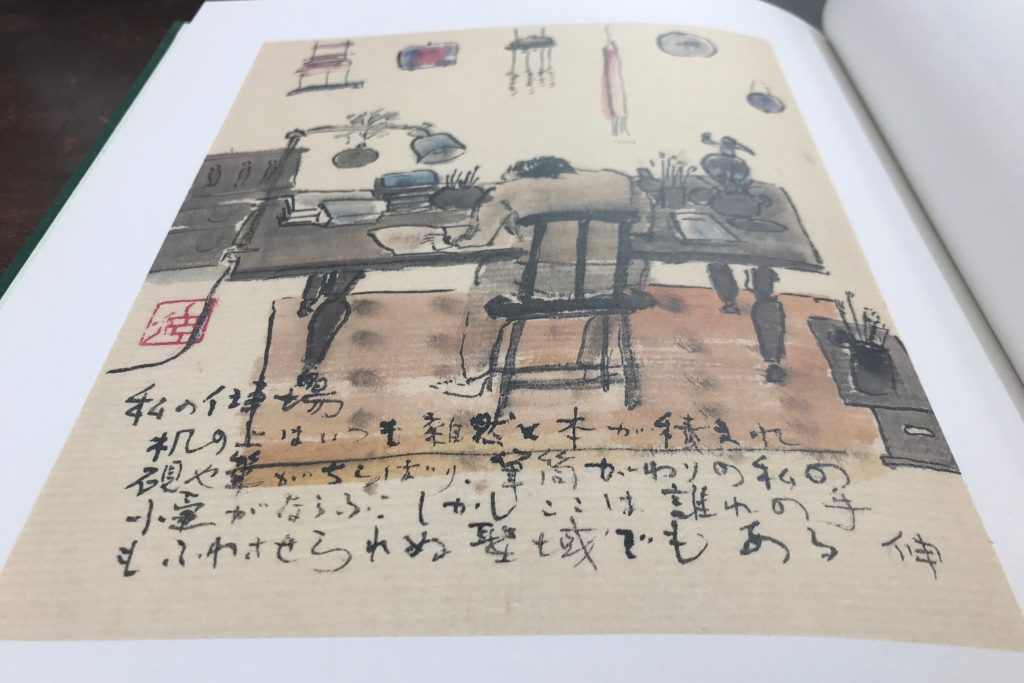 私の仕事場
机の上はいつも雑然と本が積まれ
硯や筆がちらばり、筆筒がわりの私の
小壷がならぶ しかしここは誰れの手
もふれさせられぬ聖域でもある 伸